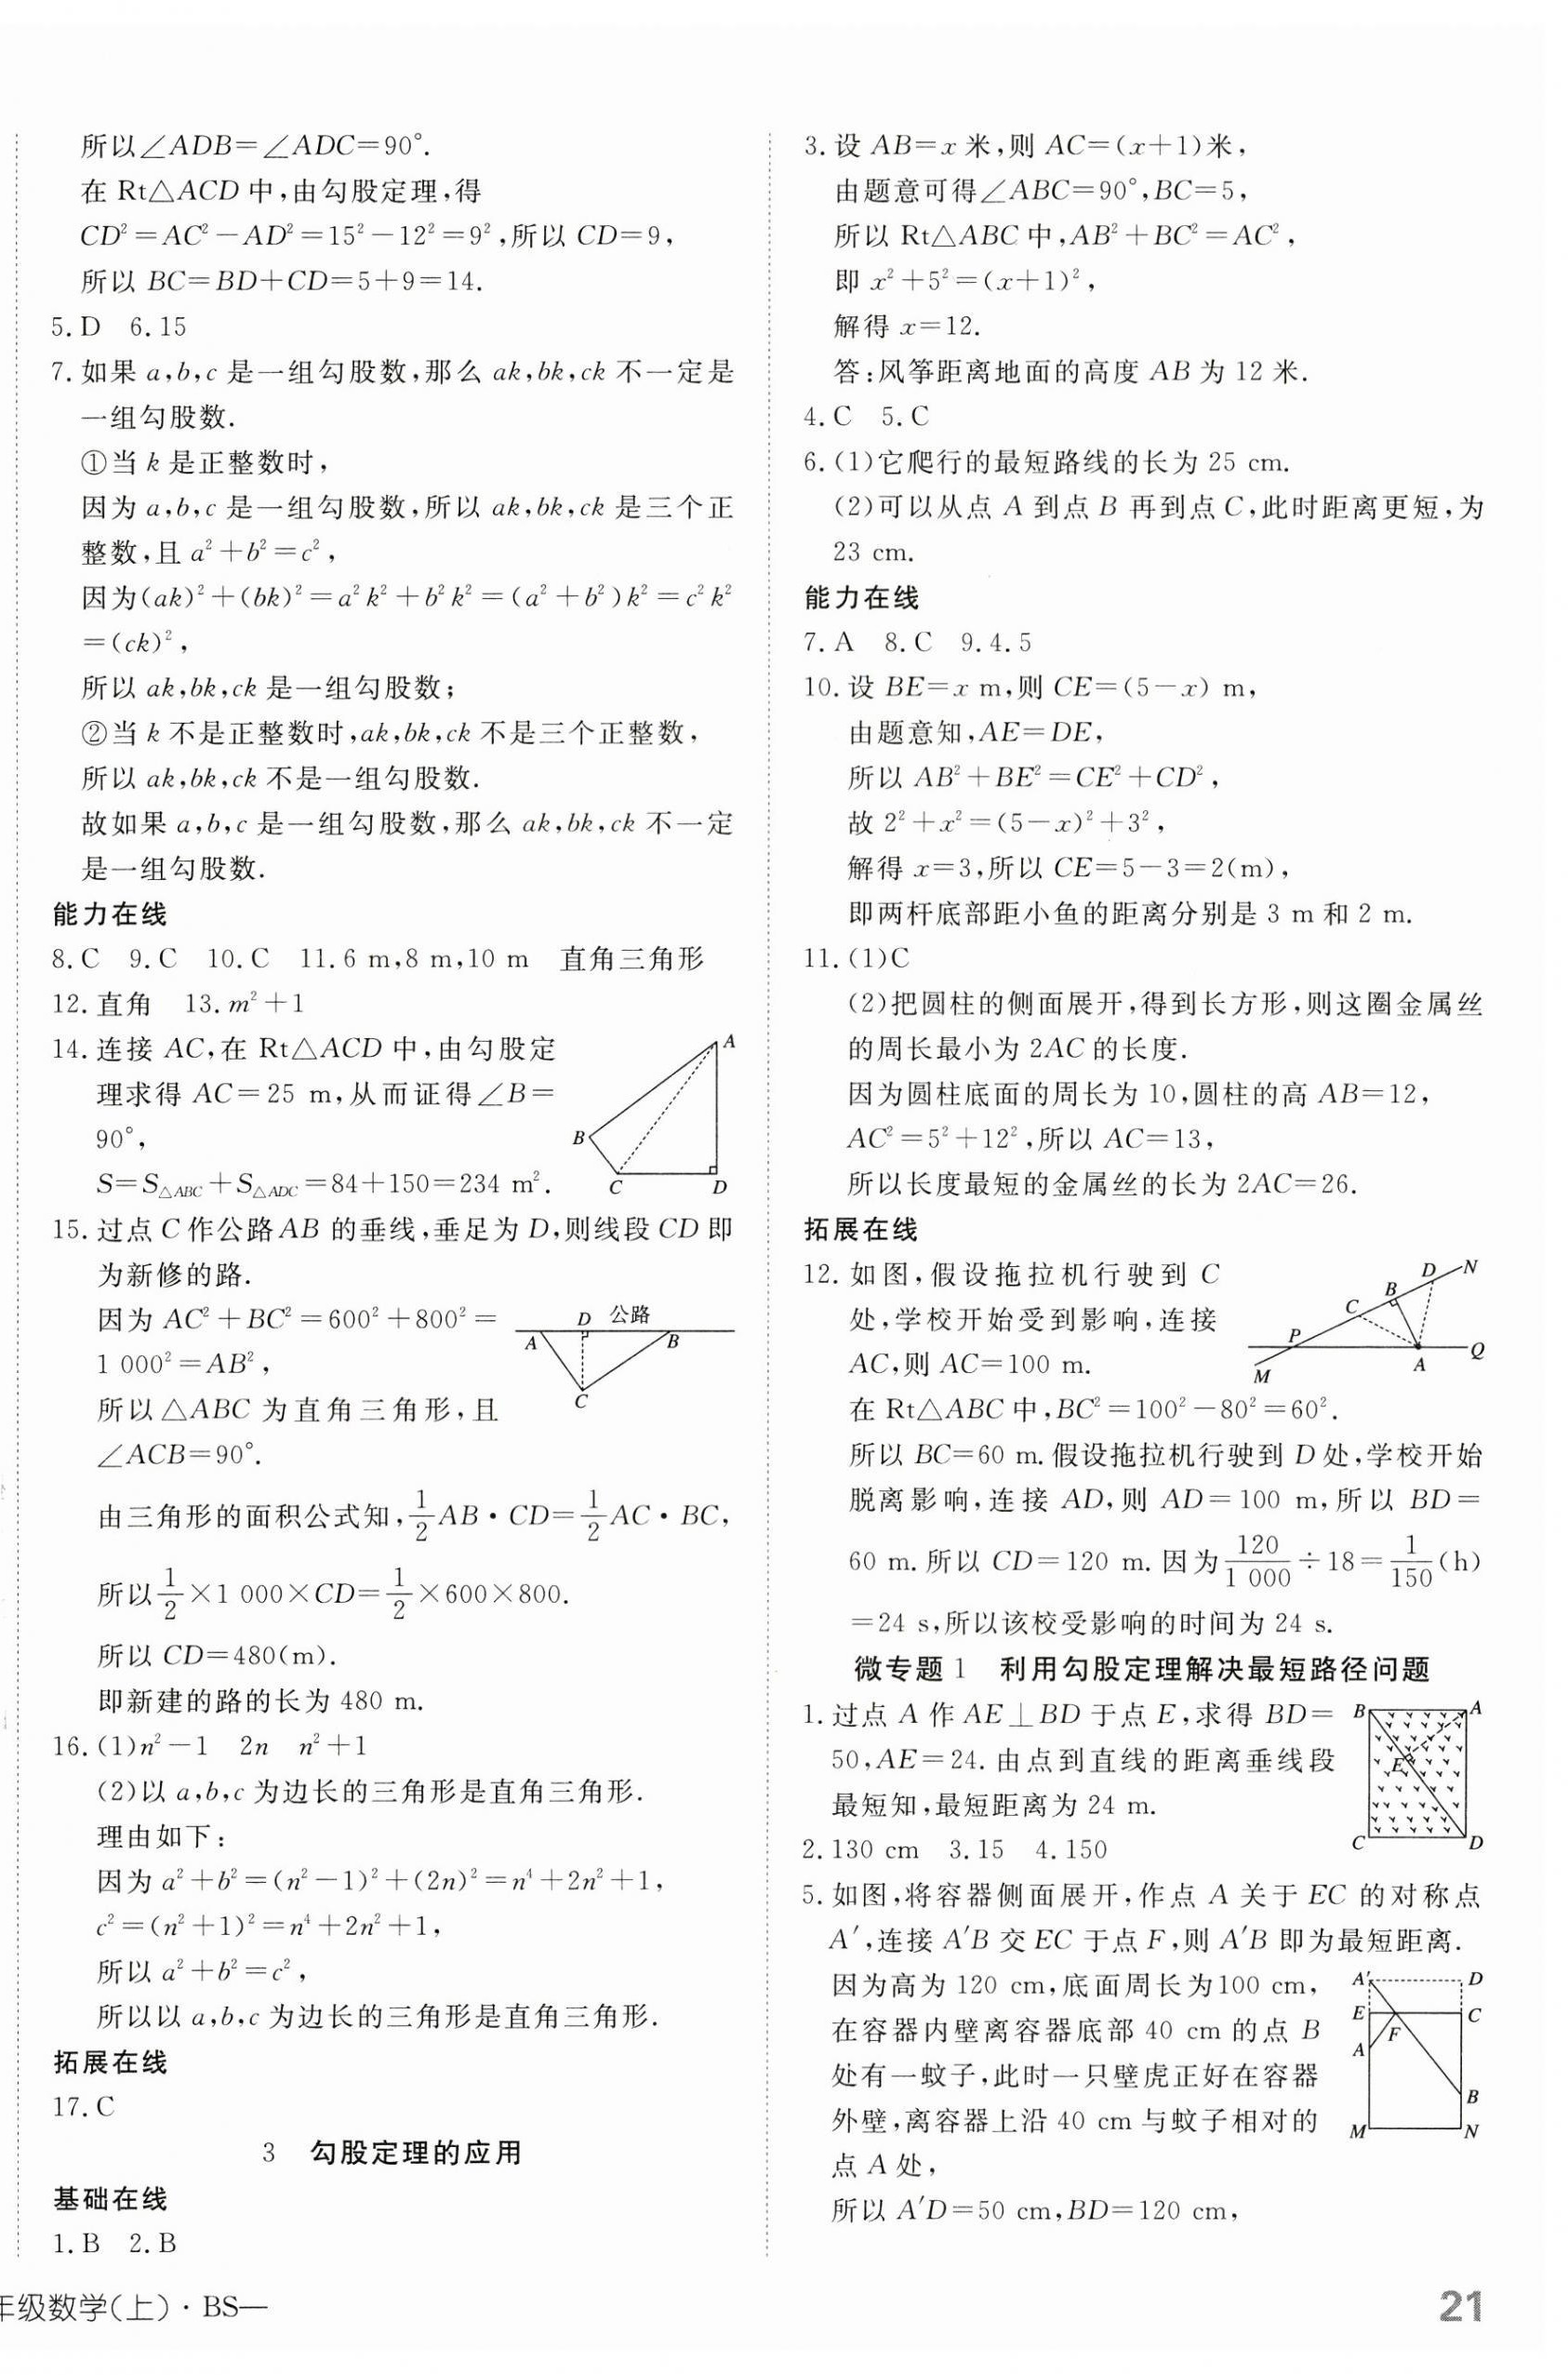 所以∠ADB=∠ADC=90°.
在 Rt△ACD 中,由勾股定理,得
CD²=AC²-AD²=15²-12²=9²,所以 CD=9,
所以 BC=BD+CD=5+9=14.
5.D 6.15
7.如果 a,b,c 是一组勾股数,那么 ak,bk,ck 不一定是
一组勾股数.
①当 k 是正整数时,
因为 a,b,c 是一组勾股数,所以 ak,bk,ck 是三个正
整数,且 a²+b²=c²,
因为(ak)²+(bk)²=a²k²+b²k²=(a²+b²)k²=c²k²
=(ck)²,
所以 ak,bk,ck 是一组勾股数;
②当 k 不是正整数时,ak,bk,ck 不是三个正整数,
所以 ak,bk,ck 不是一组勾股数.
故如果 a,b,c 是一组勾股数,那么 ak,bk,ck 不一定
是一组勾股数.
能力在线
8.C 9.C 10.C 11.6 m,8 m,10 m 直角三角形
12.直角 13.m²+1
14.连接 AC,在 Rt△ACD 中,由勾股定
理求得 AC=25 m,从而证得∠B=
90°,
S=S△ABC+S△ADC=84+150=234 m².
A
B
C
D
15.过点 C 作公路 AB 的垂线,垂足为 D,则线段 CD 即
为新修的路.
因为 AC²+BC²=600²+800²=
1 000²=AB²,
所以△ABC 为直角三角形,且
∠ACB=90°.
D 公路
A
B
C
由三角形的面积公式知,1/2AB·CD=1/2AC·BC,
所以1/2×1 000×CD=1/2×600×800.
所以 CD=480(m).
即新建的路的长为 480 m.
16.(1)n²-1 2n n²+1
(2)以 a,b,c 为边长的三角形是直角三角形.
理由如下:
因为 a²+b²=(n²-1)²+(2n)²=n⁴+2n²+1,
c²=(n²+1)²=n⁴+2n²+1,
所以 a²+b²=c²,
所以以 a,b,c 为边长的三角形是直角三角形.
拓展在线
17.C
3 勾股定理的应用
基础在线
1.B 2.B
3.设 AB=x 米,则 AC=(x+1)米,
由题意可得∠ABC=90°,BC=5,
所以 Rt△ABC 中,AB²+BC²=AC²,
即 x²+5²=(x+1)²,
解得 x=12.
答:风筝距离地面的高度 AB 为 12 米.
4.C 5.C
6.(1)它爬行的最短路线的长为 25 cm.
(2)可以从点 A 到点 B 再到点 C,此时距离更短,为
23 cm.
能力在线
7.A 8.C 9.4.5
10.设 BE=x m,则 CE=(5-x) m,
由题意知,AE=DE,
所以 AB²+BE²=CE²+CD²,
故 2²+x²=(5-x)²+3²,
解得 x=3,所以 CE=5-3=2(m),
即两杆底部距小鱼的距离分别是 3 m 和 2 m.
11.(1)C
(2)把圆柱的侧面展开,得到长方形,则这圈金属丝
的周长最小为 2AC 的长度.
因为圆柱底面的周长为 10,圆柱的高 AB=12,
AC²=5²+12²,所以 AC=13,
所以长度最短的金属丝的长为 2AC=26.
拓展在线
12.如图,假设拖拉机行驶到 C
处,学校开始受到影响,连接
AC,则 AC=100 m.
D
N
B
C
P
Q
A
M
在 Rt△ABC 中,BC²=100²-80²=60².
所以 BC=60 m.假设拖拉机行驶到 D 处,学校开始
脱离影响,连接 AD,则 AD=100 m,所以 BD=
60 m.所以 CD=120 m.因为120/1 000÷18=1/150(h)
=24 s,所以该校受影响的时间为 24 s.
微专题 1 利用勾股定理解决最短路径问题
1.过点 A 作 AE⊥BD 于点 E,求得 BD=
50,AE=24.由点到直线的距离垂线段
最短知,最短距离为 24 m.
B
A
E
C
D
2.130 cm 3.15 4.150
5.如图,将容器侧面展开,作点 A 关于 EC 的对称点
A′,连接 A′B 交 EC 于点 F,则 A′B 即为最短距离.
因为高为 120 cm,底面周长为100 cm,
在容器内壁离容器底部 40 cm 的点 B
处有一蚊子,此时一只壁虎正好在容器
外壁,离容器上沿 40 cm 与蚊子相对的
点 A 处,
A′
D
E
C
F
A
B
M
N
所以 A′D=50 cm,BD=120 cm,
年级数学(上)·BS—
21